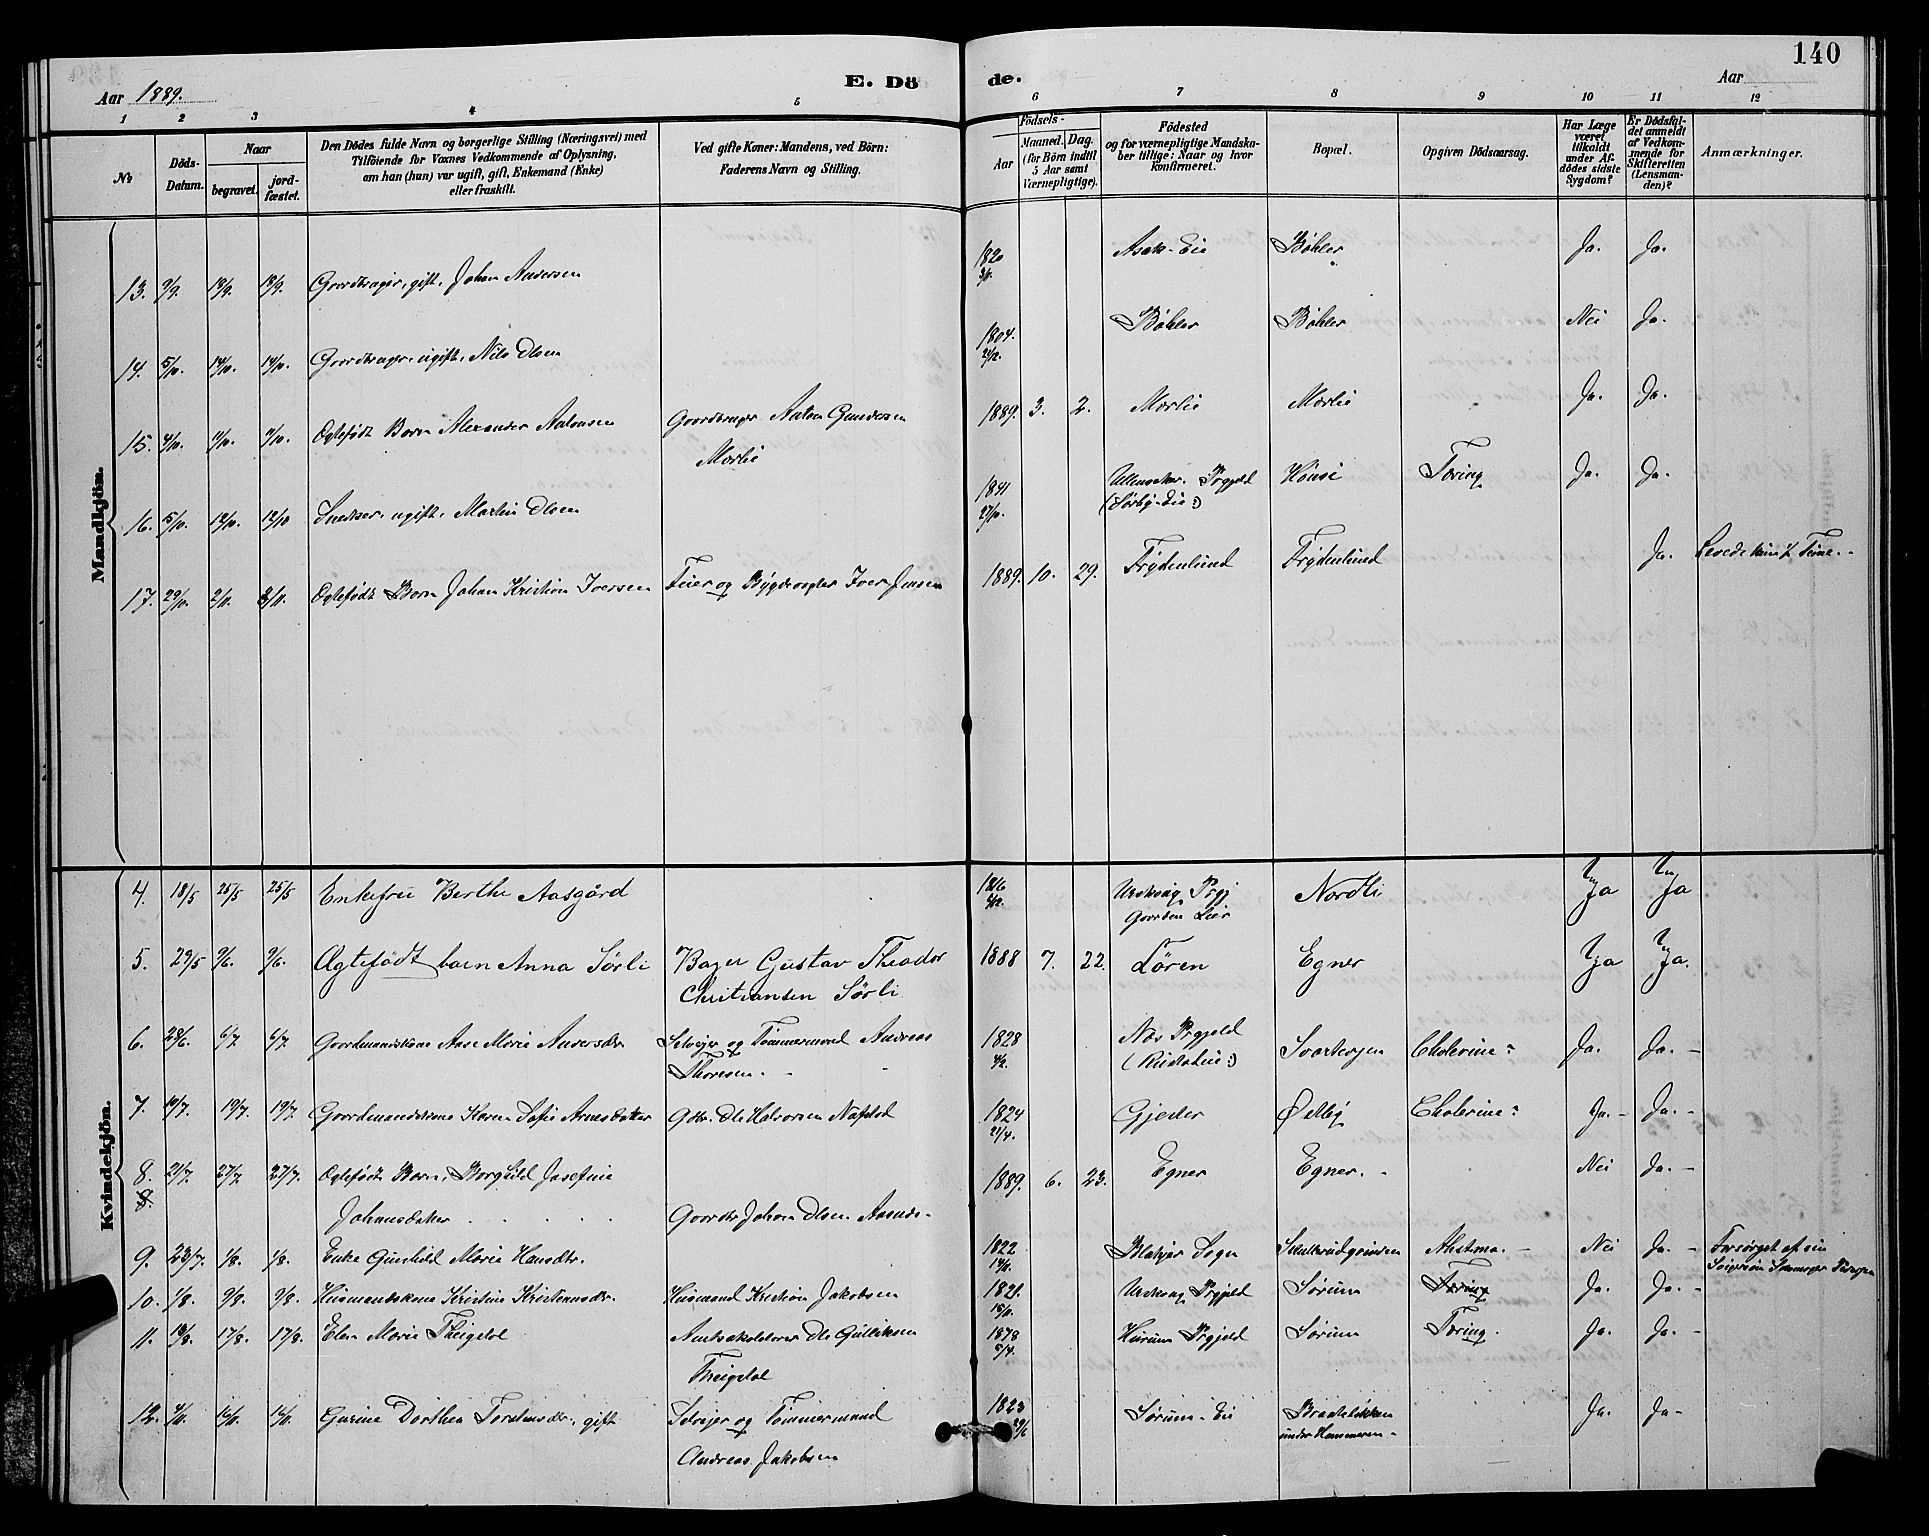 140
Aar 1889. E. Dö de. Aar
1 2 3 4 5 6 7 8 9 10 11 12
No
Döds-Datum.
Naar
begravet. jord-fæstet.
Den Dödes fulde Navn og borgerlige Stilling (Næringsvei) med
Tilföiende for Voxnes Vedkommende af Oplysning,
om han (hun) var ugift, gift, Enkemand (Enke)
eller fraskilt.
Ved gifte Koner: Mandens, ved Börn:
Faderens Navn og Stilling.
Födsels-
Aar Maaned. Dag.
(for Börn indtil
5 Aar samt
Værnepligtige).
Födested
og for værnepligtige Mandska-
ber tillige: Naar og hvor
konfirmeret.
Bopæl.
Opgiven Dödsaarsag.
Har Læge
været
tilkaldt
under Af-
dödes sidste
Sygdom?
Er Dödsfal-
det anmeldt
af Vedkom-
mende for
Skifteretten
(Lensman-
den)?
Anmærkninger.
Mandkjön.
13. 9/9. 18/9. 18/9. Gaardbruger, gift, Johan Andersen 1820 Asak-Eie Böhler Ja. Ja.
14. 5/10. 14/10. 14/10. Gaardbruger, ugift, Nils Olsen 1804. 21/12. Böhler Böhler Nei Ja.
15. 4/10. 11/10. 11/10. Ægtefødt Barn Alexander Antonsen Gaardbruger Anton Gundersen 1889. 3. 2. Morlie Morlie Ja. Ja.
Morlie
16. 5/10. 12/10. 12/10 Snedker, ugift, Martin Olsen 1841 27/10. Ullensaker Prgjeld Hönsi Tæring Ja. Ja.
(Sörby-Eie:)
17. 29/10. 2/11. 3/11. Ægtefødt Barn Johan Kristian Iversen Feier og Bygdevægter Iver Jensen 1889. 10. 29. Frydenlund Frydenlund Ja. Levede kun ½ Time.-
Kvindekjön.
4. 18/5 25/5 25/5 Enkefru Berthe Aasgård Urskoug Prgj Nordli Ja Ja
Gaarden Lier
5. 29/5 9/6. 9/6. Ægtefödt barn Anna Sörli Bager Gustav Theodor 1888 7. 22. Lören Egner Ja Ja.
Christiansen Sörli
6. 28/6. 6/7. 6/7. Gaardmandskone Aase Marie Andersdr. Selveier og Tömmermand Andreas 1828 4/2. Næs Prgjeld Svartergen Cholerine: Ja. Ja.-
Thoresen.
7. 10/7. 19/7. 19/7. Gaardmandskone Karen Sofie Arnesdatter Gdbr. Ole Halvorsen Nafstad 1824 21/4. Gjester Ödeby Cholerine: Ja.- Ja.-
8. 21/7. 27/7. 27/7. Ægtefødt Barn, Borghild Josefine 1889. 6. 23. Egner Egner.- Nei Ja.-
8. Johansdatter Gaardbr Johan Olsen Aasnds-
9. 23/7. 1/8. 1/8. Enke Gunhild Marie Hansdtr. 1822 Blakjer Sogn Skulkrudgrinden Ahstma.- Nei Ja.- Forsörget af sin
10. 1/8. 9/8. 9/8. Husmandskone Kristine Kristensdr. Husmand Kristian Jakobsen 1821. Urskoug Prgjeld Sörum Tæring Ja. Ja.-
11. 10/8. 17/8. 17/8. Elen Marie Fleigstol Amtsskolelærer Ole Gulliksen 1878 5/4. Hurum Prgjeld Sörum Tæring. Ja. Ja.-
12. 4/11. Gurine Dorthea Torstensdr., gift Selveier og Tömmermand 1823 29/6 Sörum-Eie Braatelökken Ja. Ja-
under Hammeren-
Andreas Jakobsen